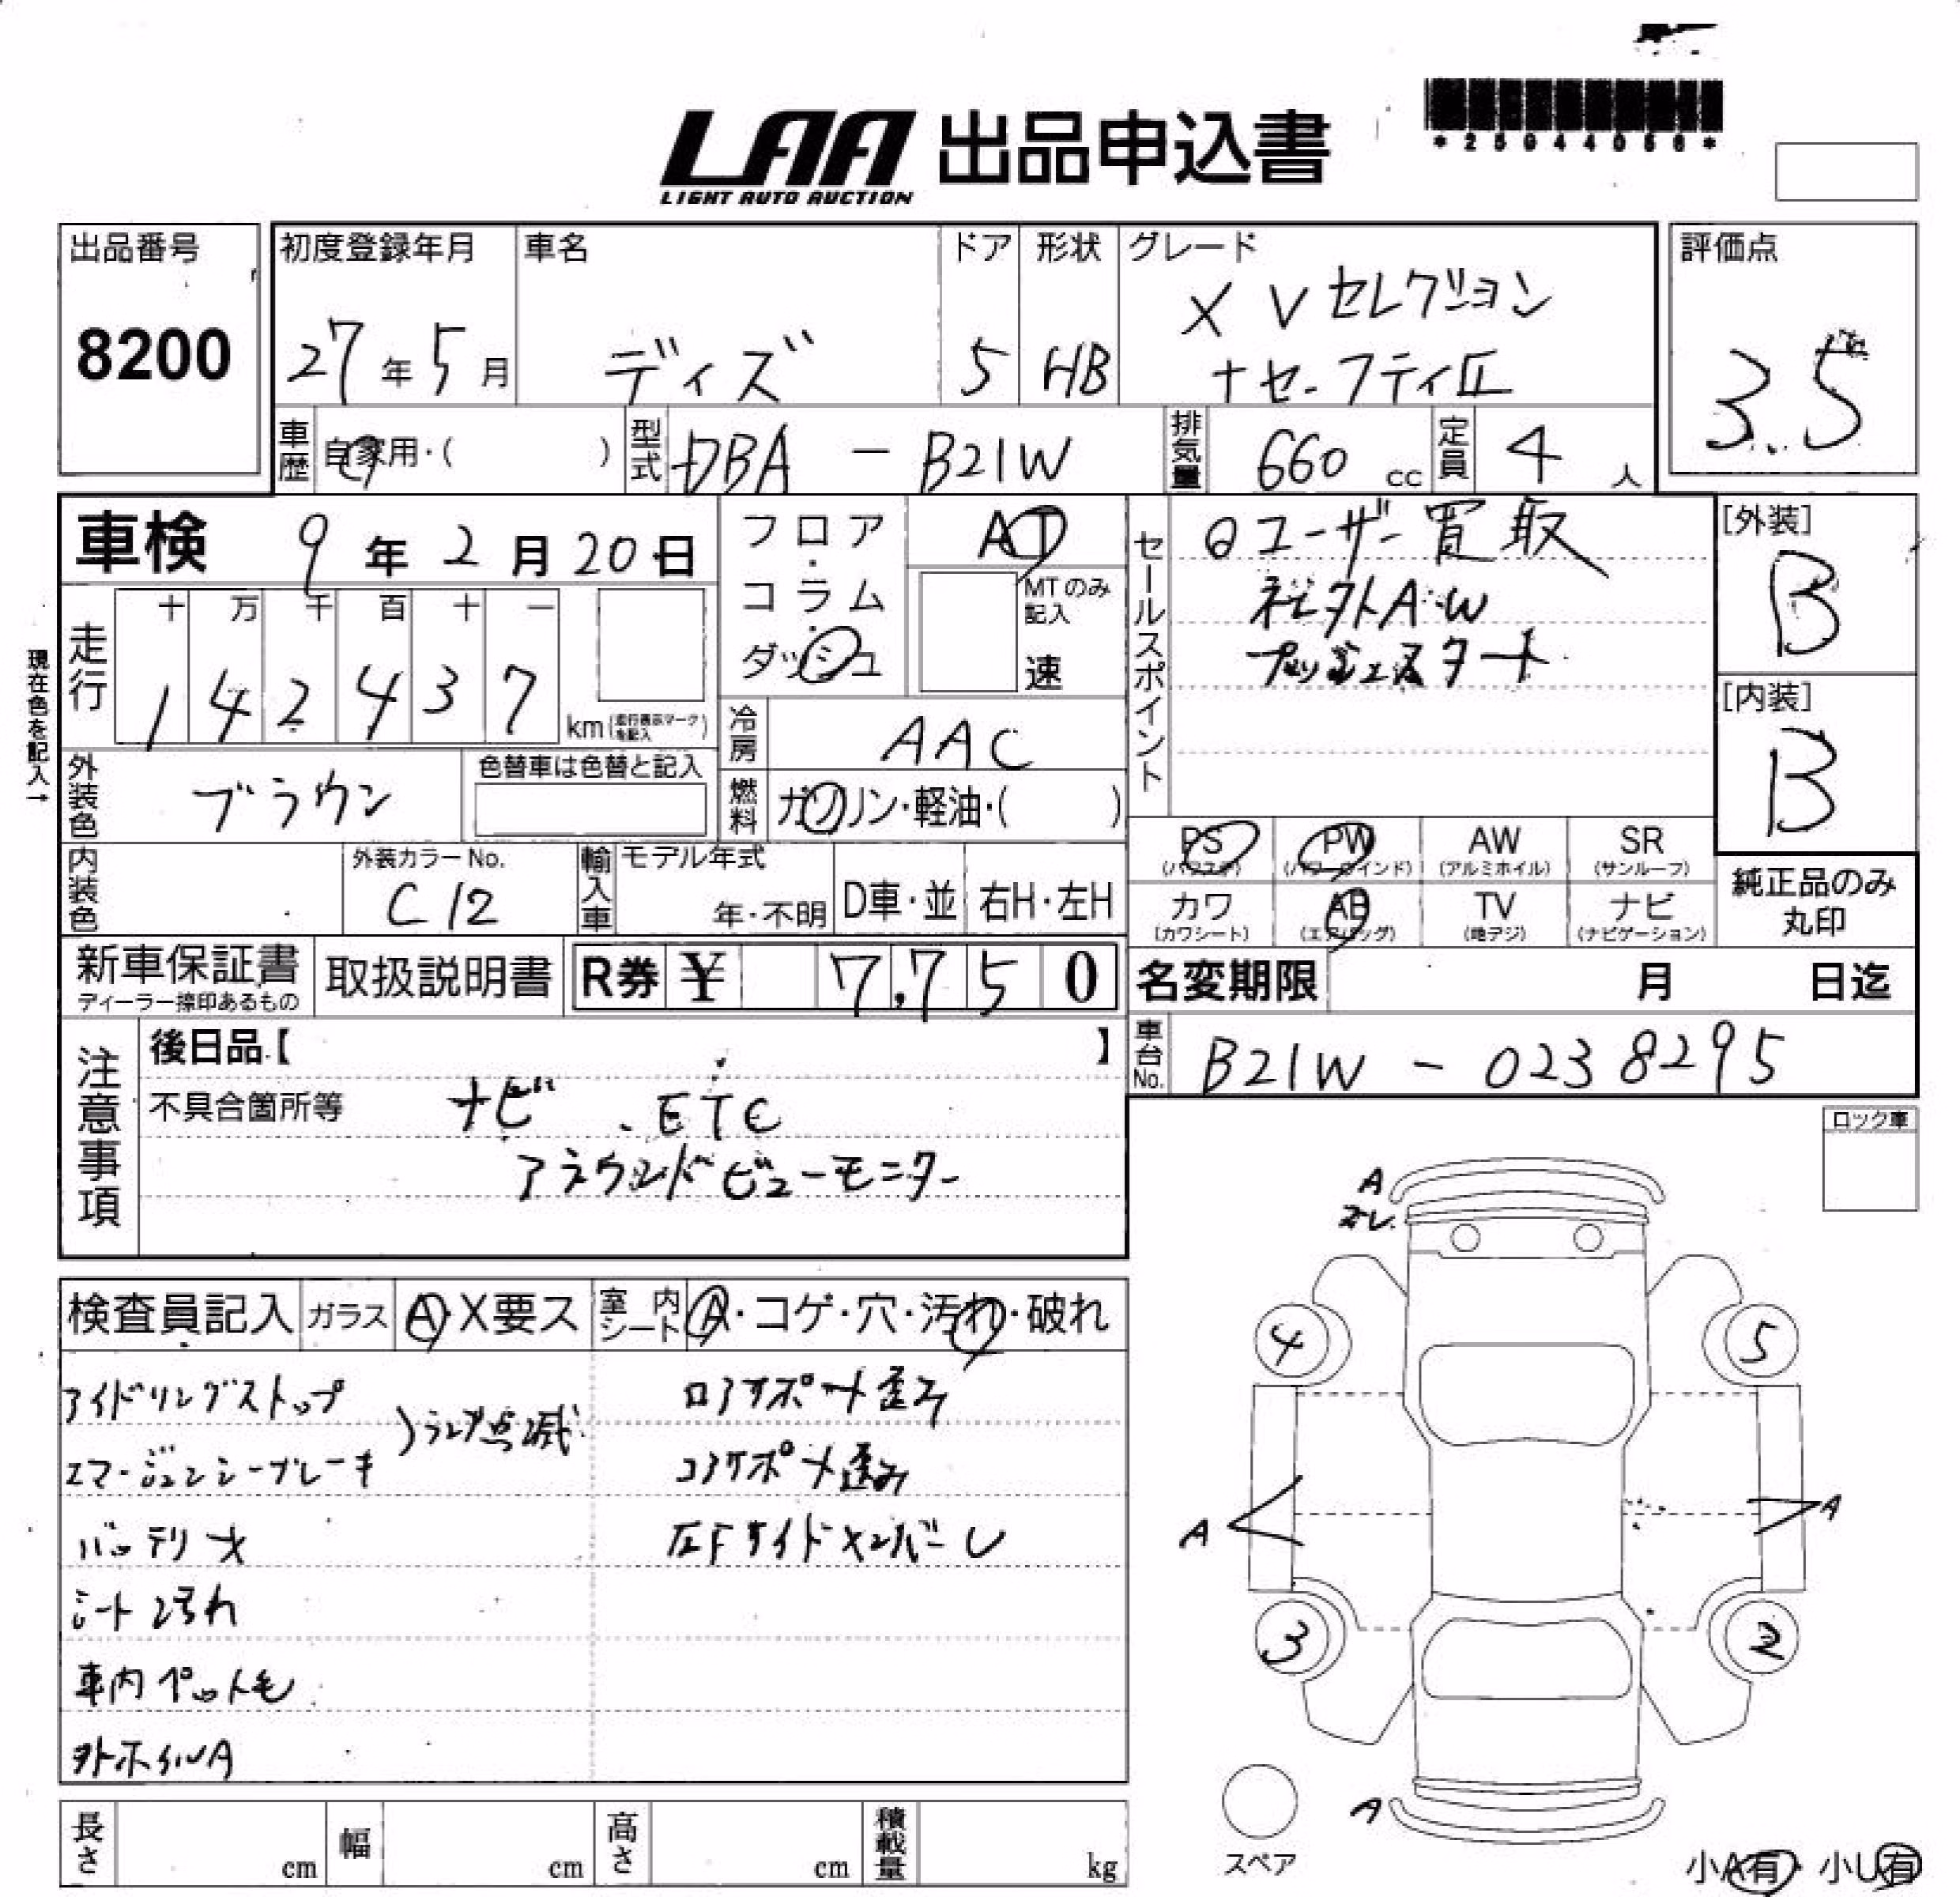 LAA 出品申込書
LIGHT AUTO AUCTION
*25044056*
出品番号
8200
初度登録年月
27年5月
車名
ディズ
ドア
5
形状
HB
グレード
X Vセレクション
+セーフティII
評価点
3.5
車歴
自家用・( )
型式
DBA - B21W
排気量
660 cc
定員
4 人
車検 9年2月20日
フロア・コラム・ダッシュ
AT
MTのみ記入
速
セールスポイント
◎ユーザー買取
社外AW
プッシュスタート
[外装]
B
[内装]
B
現在色を記入→
走行
十 万 千 百 十 一
1 4 2 4 3 7
km(走行表示マークを記入)
冷房
AAC
外装色
ブラウン
色替車は色替と記入
燃料
ガソリン・軽油・( )
内装色
外装カラーNo.
C12
輸入車
モデル年式
年・不明
D車・並
右H・左H
PS
(パワステ)
PW
(パワーウインド)
AW
(アルミホイル)
SR
(サンルーフ)
カワ
(カワシート)
AB
(エアバッグ)
TV
(地デジ)
ナビ
(ナビゲーション)
純正品のみ
丸印
新車保証書
ディーラー捺印あるもの
取扱説明書
R券 ¥ 7,750
名変期限 月 日迄
注意事項
後日品【 】
不具合箇所等
ナビ . ETC
アラウンドビューモニター
車台No.
B21W - 0238295
ロック車
検査員記入
ガラス
A・X要ス
室内シート
A・コゲ・穴・汚れ・破れ
アイドリングストップ
エマージェンシーブレーキ
ランプ点滅
バッテリーX
シート汚れ
車内ペット毛
外ホイルA
ロアサポート歪み
コアサポート歪み
左Fサイドメンバー
A
ズレ
4
5
A
A
3
2
A
スペア
小A有・小U有
長さ cm
幅 cm
高さ cm
積載量 kg